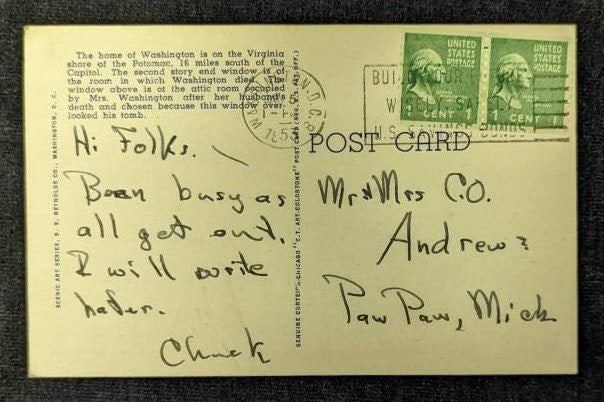 The home of Washington is on the Virginia
shore of the Potomac, 16 miles south of the
Capitol. The second story end window is of
the room in which Washington died. The
window above is of the attic room occupied
by Mrs. Washington after her husband's
death and chosen because this window over-
looked his tomb.
Hi Folks.
Been busy as
all get out.
I will write
later.
Chuck
SCENIC ART SERIES, B. S. REYNOLDS CO., WASHINGTON, D. C.
GENUINE CURTEICH-CHICAGO "C.T. ART-COLORTONE" POST CARD (REG. U.S. PAT. OFF.)
UNITED
STATES
POSTAGE
1 CENT 1
UNITED
STATES
POSTAGE
1 CENT 1
U.S. SAVINGS BONDS
POST CARD
Mr & Mrs C.O.
Andrews
Paw Paw, Mich